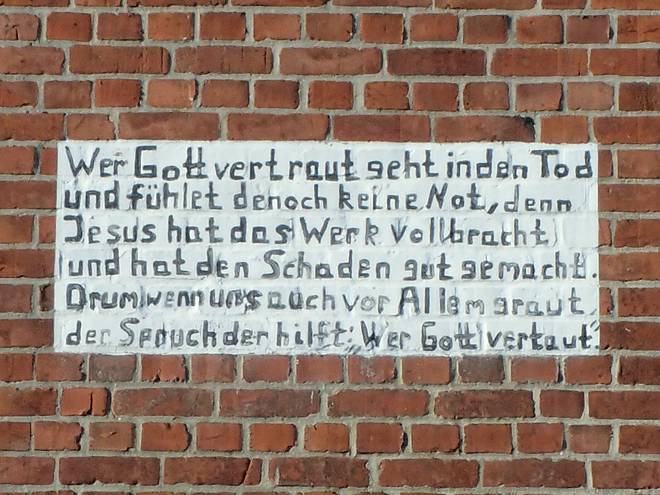 Wer Gott vertraut geht in den Tod
und fühlet denoch keine Not, denn
Jesus hat das Werk vollbracht
und hat den Schaden gut gemacht.
Drum wenn uns auch vor Allem graut
der Spruch der hilft: "Wer Gott vertaut".